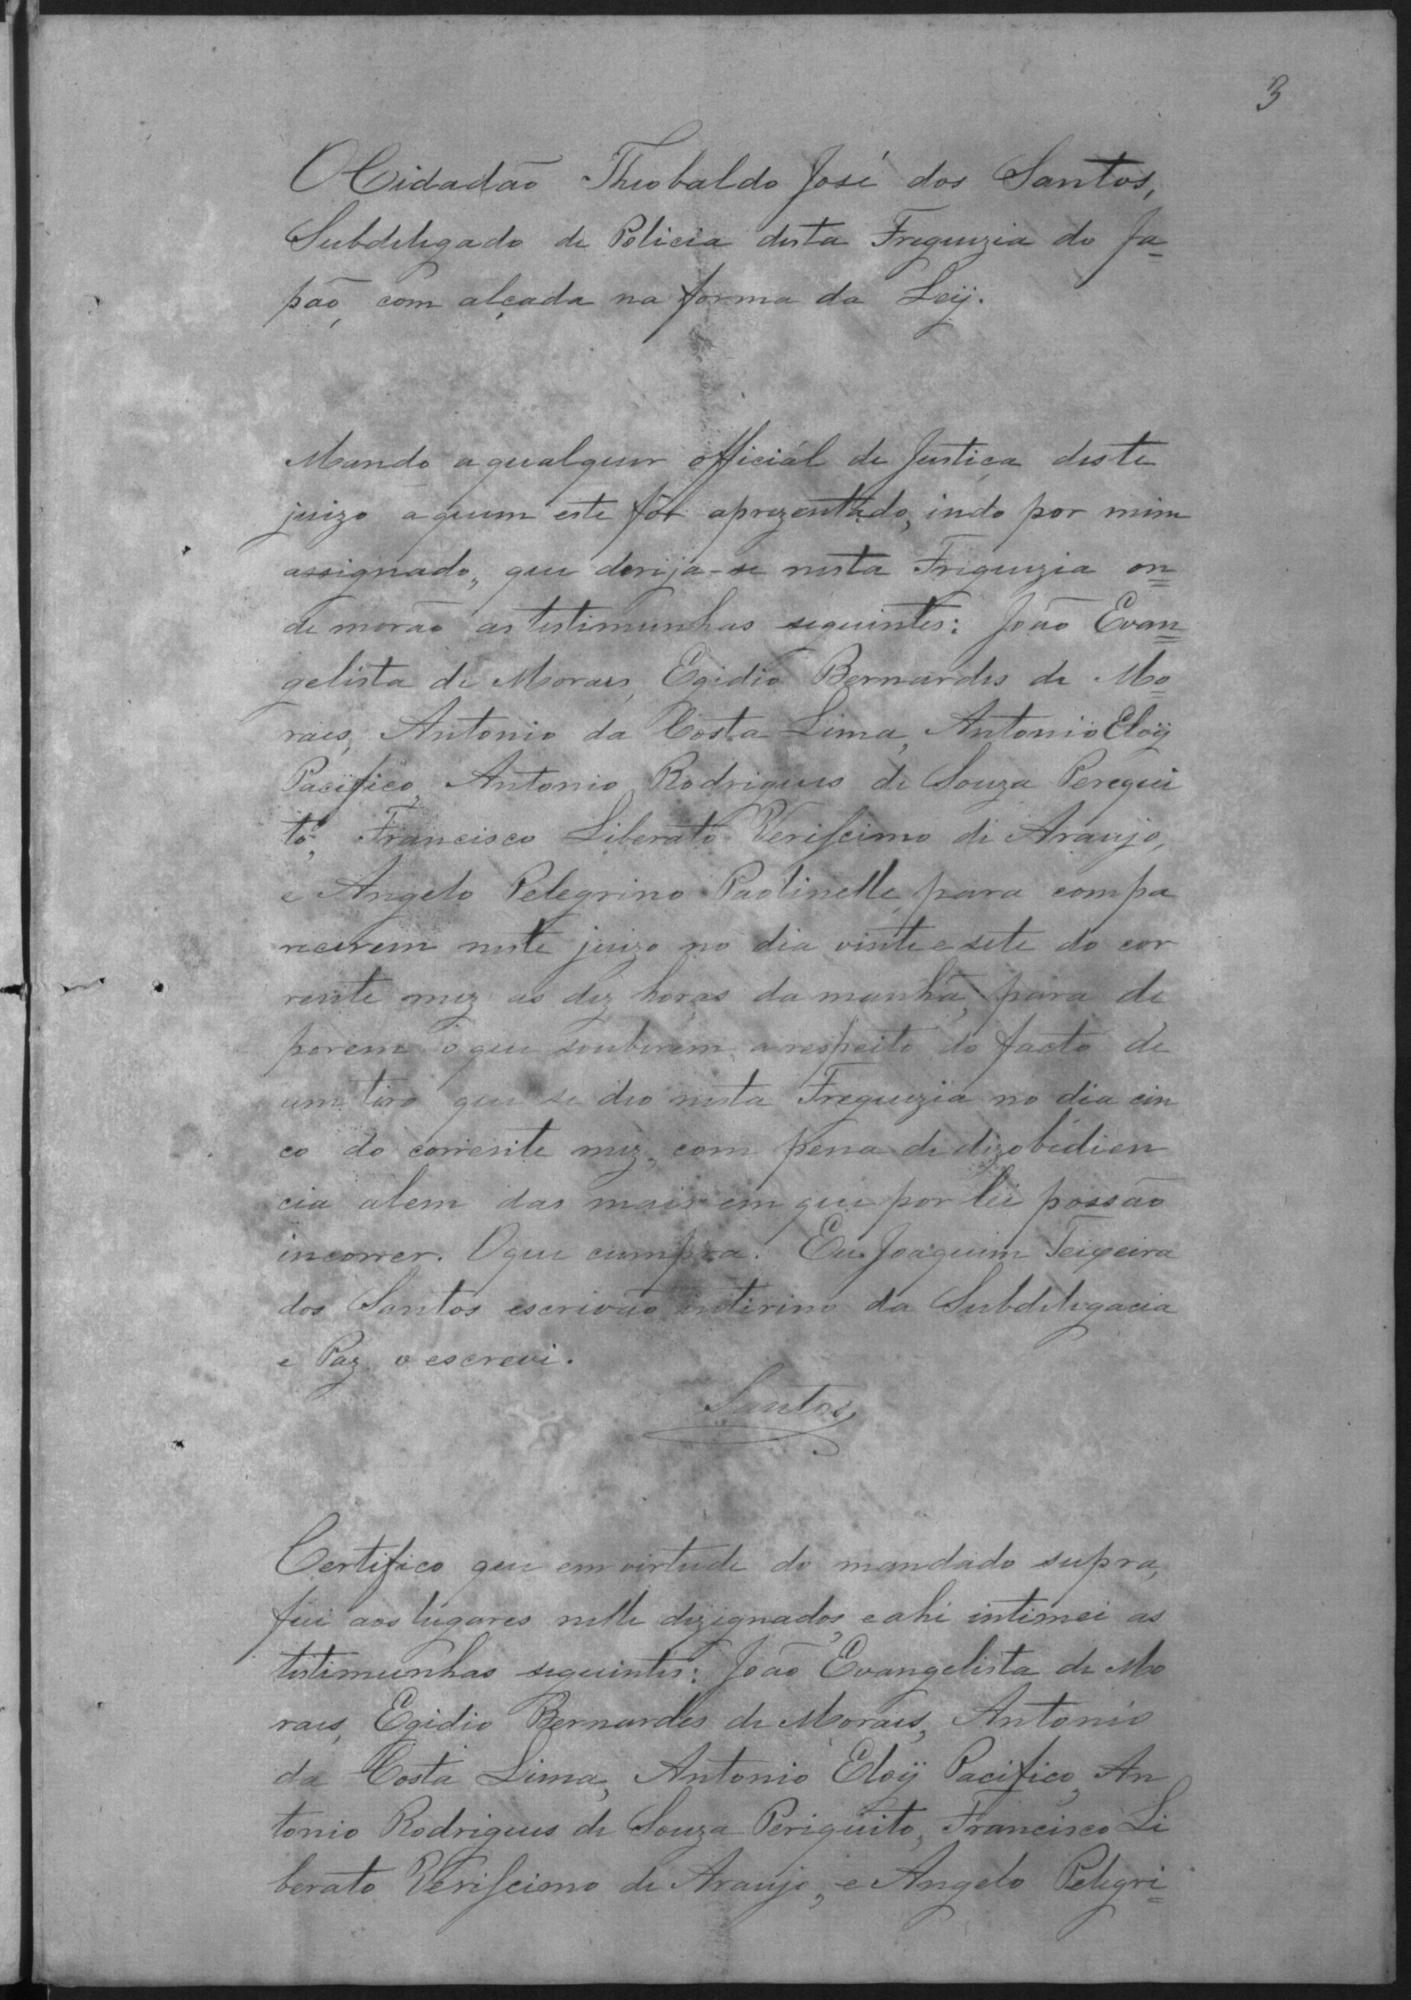 3
O Cidadão Theobaldo José dos Santos,
Subdelegado de Policia desta Freguezia do Ja=
pão, com alçada na forma da Leÿ.
Mando a qualquer official de Justiça deste
juizo a quem este fôr aprezentado, indo por mim
assignado, que derija-se nesta Freguezia on=
de morão as testimunhas seguintes: João Evan=
gelista de Moraes, Egidio Bernardes de Mo=
raes, Antonio da Costa Lima, Antonio Eloÿ
Pacifico, Antonio Rodrigues de Souza Perequi
to, Francisco Liberato Verifcimo de Araujo,
e Angelo Pelegrino Paolinelle, para compa
recerem neste juizo no dia vinte e sete do cor
rente mez as dez horas da manhã, para de
porem o que souberem a respeito do facto de
um tiro que se deo nesta Freguezia no dia cin
co do corrente mez, com pena de dizobidien
cia alem das mais em que por lei possão
incorrer. O que cumpra. Eu Joaquim Teixeira
dos Santos escrivão intirino da Subdelegacia
e Paz o escrevi.
Santos
Certifico que em virtude do mandado supra,
fui aos lugares nelle dizignados, e ahi intimei as
testimunhas seguintes: João Evangelista de Mo
raes, Egidio Bernardes de Moraes, Antonio
da Costa Lima, Antonio Eloÿ Pacifico, An
tonio Rodrigues de Souza Periquito, Francisco Li
berato Verifcimo de Araujo, e Angelo Pelegri=